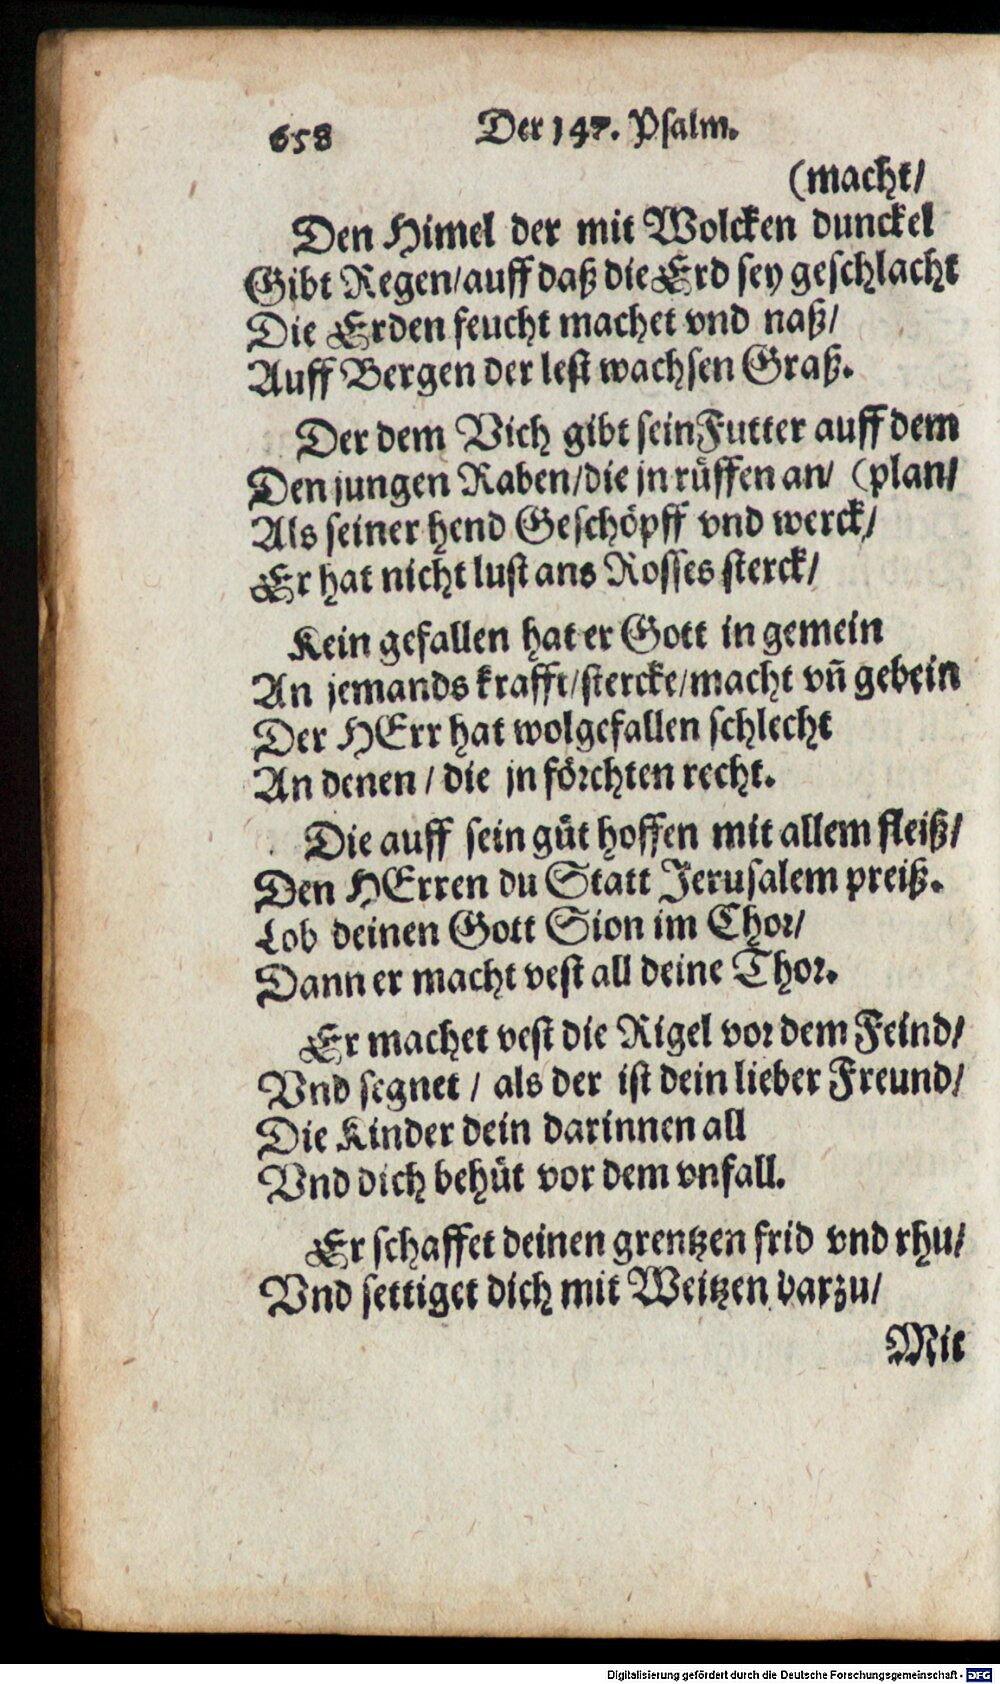 658 Der 147. Psalm.
(macht/
Den Himel der mit Wolcken dunckel
Gibt Regen/auff daß die Erd sey geschlacht
Die Erden feucht machet vnd naß/
Auff Bergen der lest wachsen Graß.
Der dem Vich gibt sein Futter auff dem
Den jungen Raben/die jn rüffen an/ (plan/
Als seiner hend Geschöpff vnd werck/
Er hat nicht lust ans Rosses sterck/
Kein gefallen hat er Gott in gemein
An jemands krafft/stercke/macht vñ gebein
Der HErr hat wolgefallen schlecht
An denen / die jn förchten recht.
Die auff sein güt hoffen mit allem fleiß/
Den HErren du Statt Jerusalem preiß.
Lob deinen Gott Sion im Chor/
Dann er macht vest all deine Thor.
Er machet vest die Rigel vor dem Feind/
Vnd segnet / als der ist dein lieber Freund/
Die Kinder dein darinnen all
Vnd dich behüt vor dem vnfall.
Er schaffet deinen grentzen frid vnd rhu/
Vnd settiget dich mit Weitzen darzu/
Mit
Digitalisierung gefördert durch die Deutsche Forschungsgemeinschaft - DFG